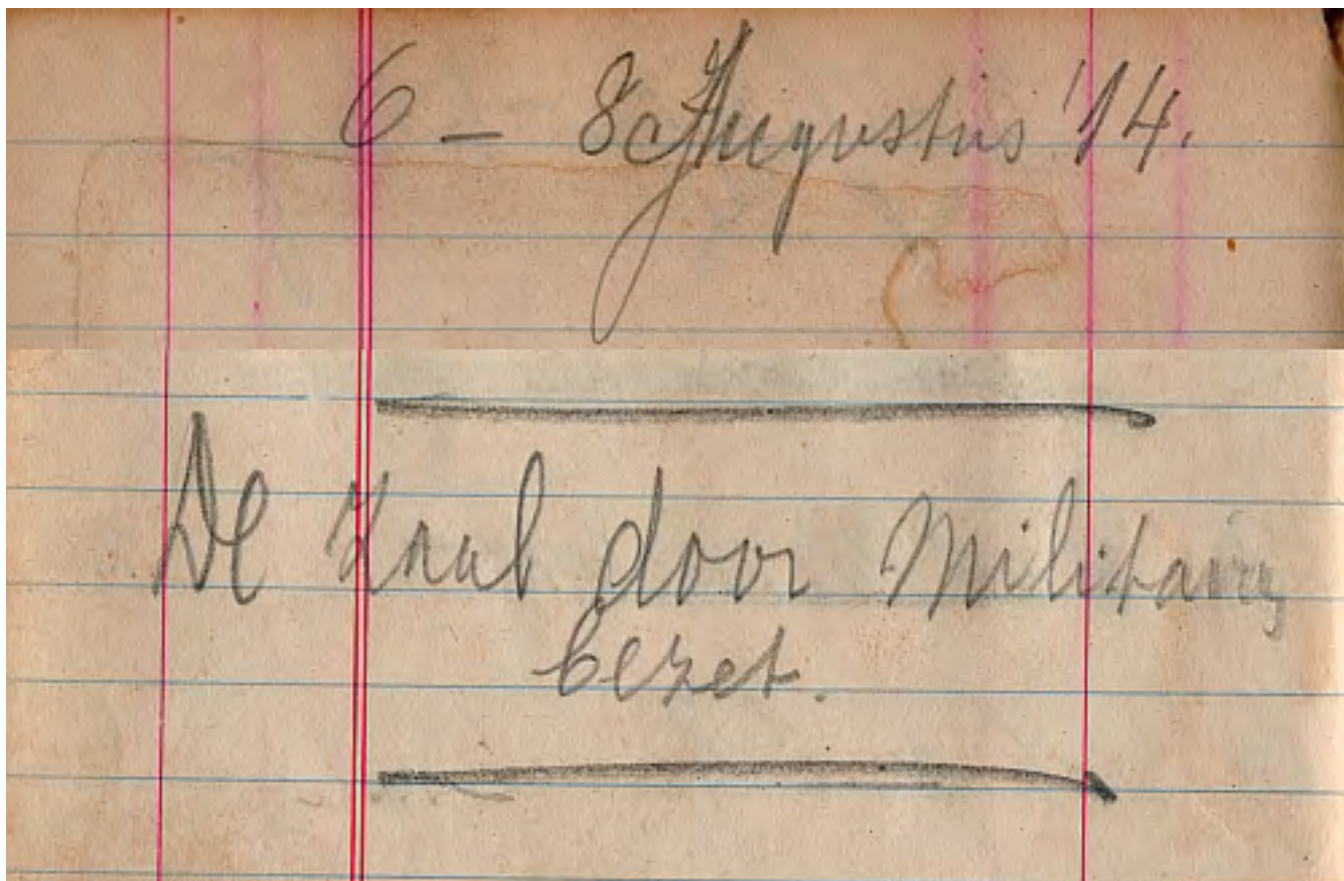 6 - 8 Augustus '14.
De Zaal door Militairen
bezet.